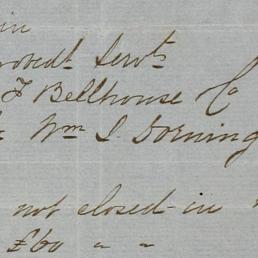 in
obedt Servts
F Bellhouse Co
Wm S. Gorning
not closed-in
£60 " "